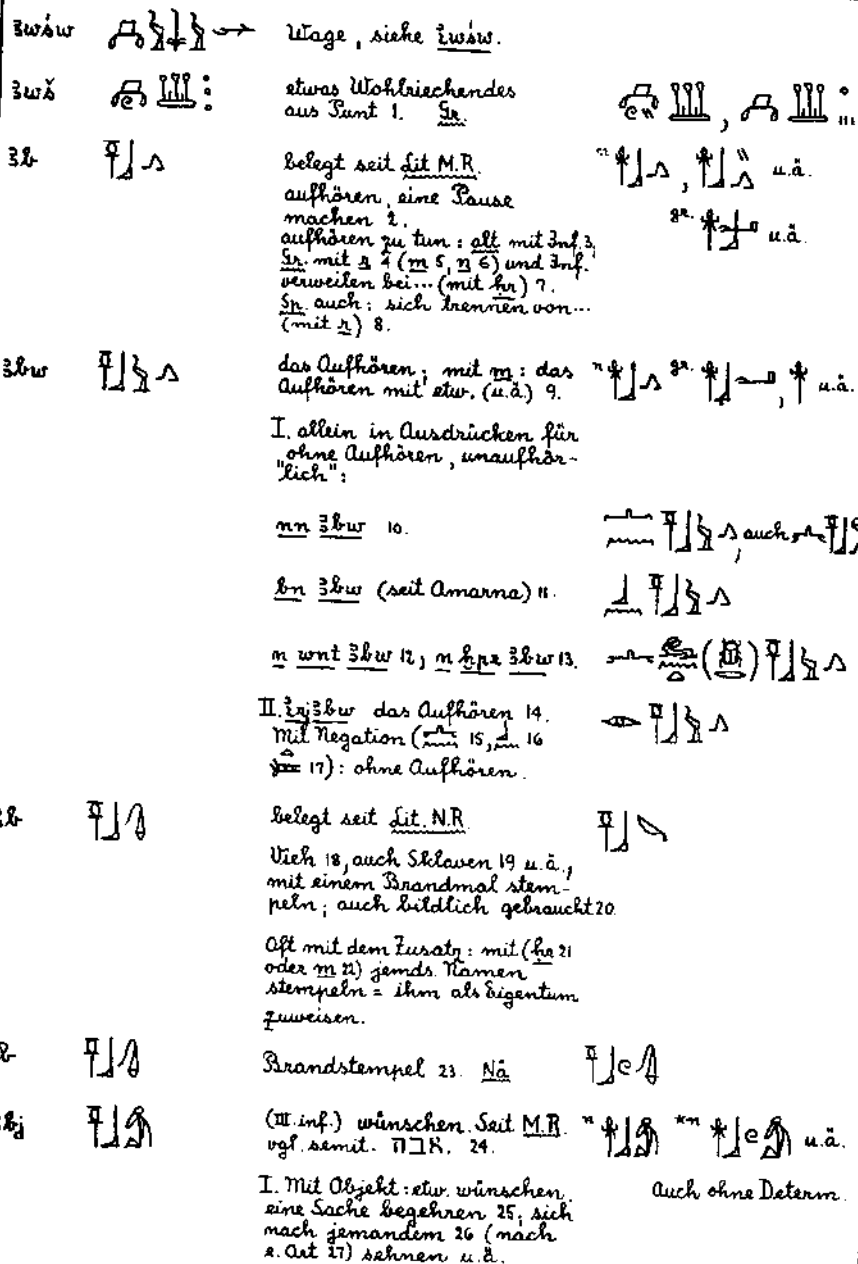 ꜣwśw Wage, siehe iwśw.
ꜣwš etwas Wohlriechendes
aus Punt 1. Gr.
ꜣb belegt seit Lit M.R. u.ä.
aufhören, eine Pause
machen 2. gr. u.ä.
aufhören zu tun: alt mit Inf. 3,
Gr. mit r 4 (m 5, n 6) und Inf.
verweilen bei... (mit ḥr) 7.
Sp. auch: sich trennen von...
(mit r) 8.
ꜣbw das Aufhören; mit m: das n gr. u.ä.
Aufhören mit etw. (u.ä.) 9.
I. allein in Ausdrücken für
"ohne Aufhören, unaufhör-
lich":
nn ꜣbw 10. , auch
bn ꜣbw (seit Amarna) 11.
n wnt ꜣbw 12, n ḫpr ꜣbw 13. ( )
II. irj ꜣbw das Aufhören 14.
Mit Negation ( 15, 16
17): ohne Aufhören.
ꜣb belegt seit Lit. N.R.
Vieh 18, auch Sklaven 19 u.ä.,
mit einem Brandmal stem-
peln; auch bildlich gebraucht 20.
Oft mit dem Zusatz: mit (ḥr 21
oder m 22) jemds. Namen
stempeln = ihm als Eigentum
zuweisen.
b Brandstempel 23. Nä
ꜣbj (III. inf.) wünschen. Seit M.R. n *n u.ä.
vgl. semit. אבה. 24.
I. Mit Objekt: etw. wünschen, Auch ohne Determ.
eine Sache begehren 25; sich
nach jemandem 26 (nach
e. Ort 27) sehnen u.ä.